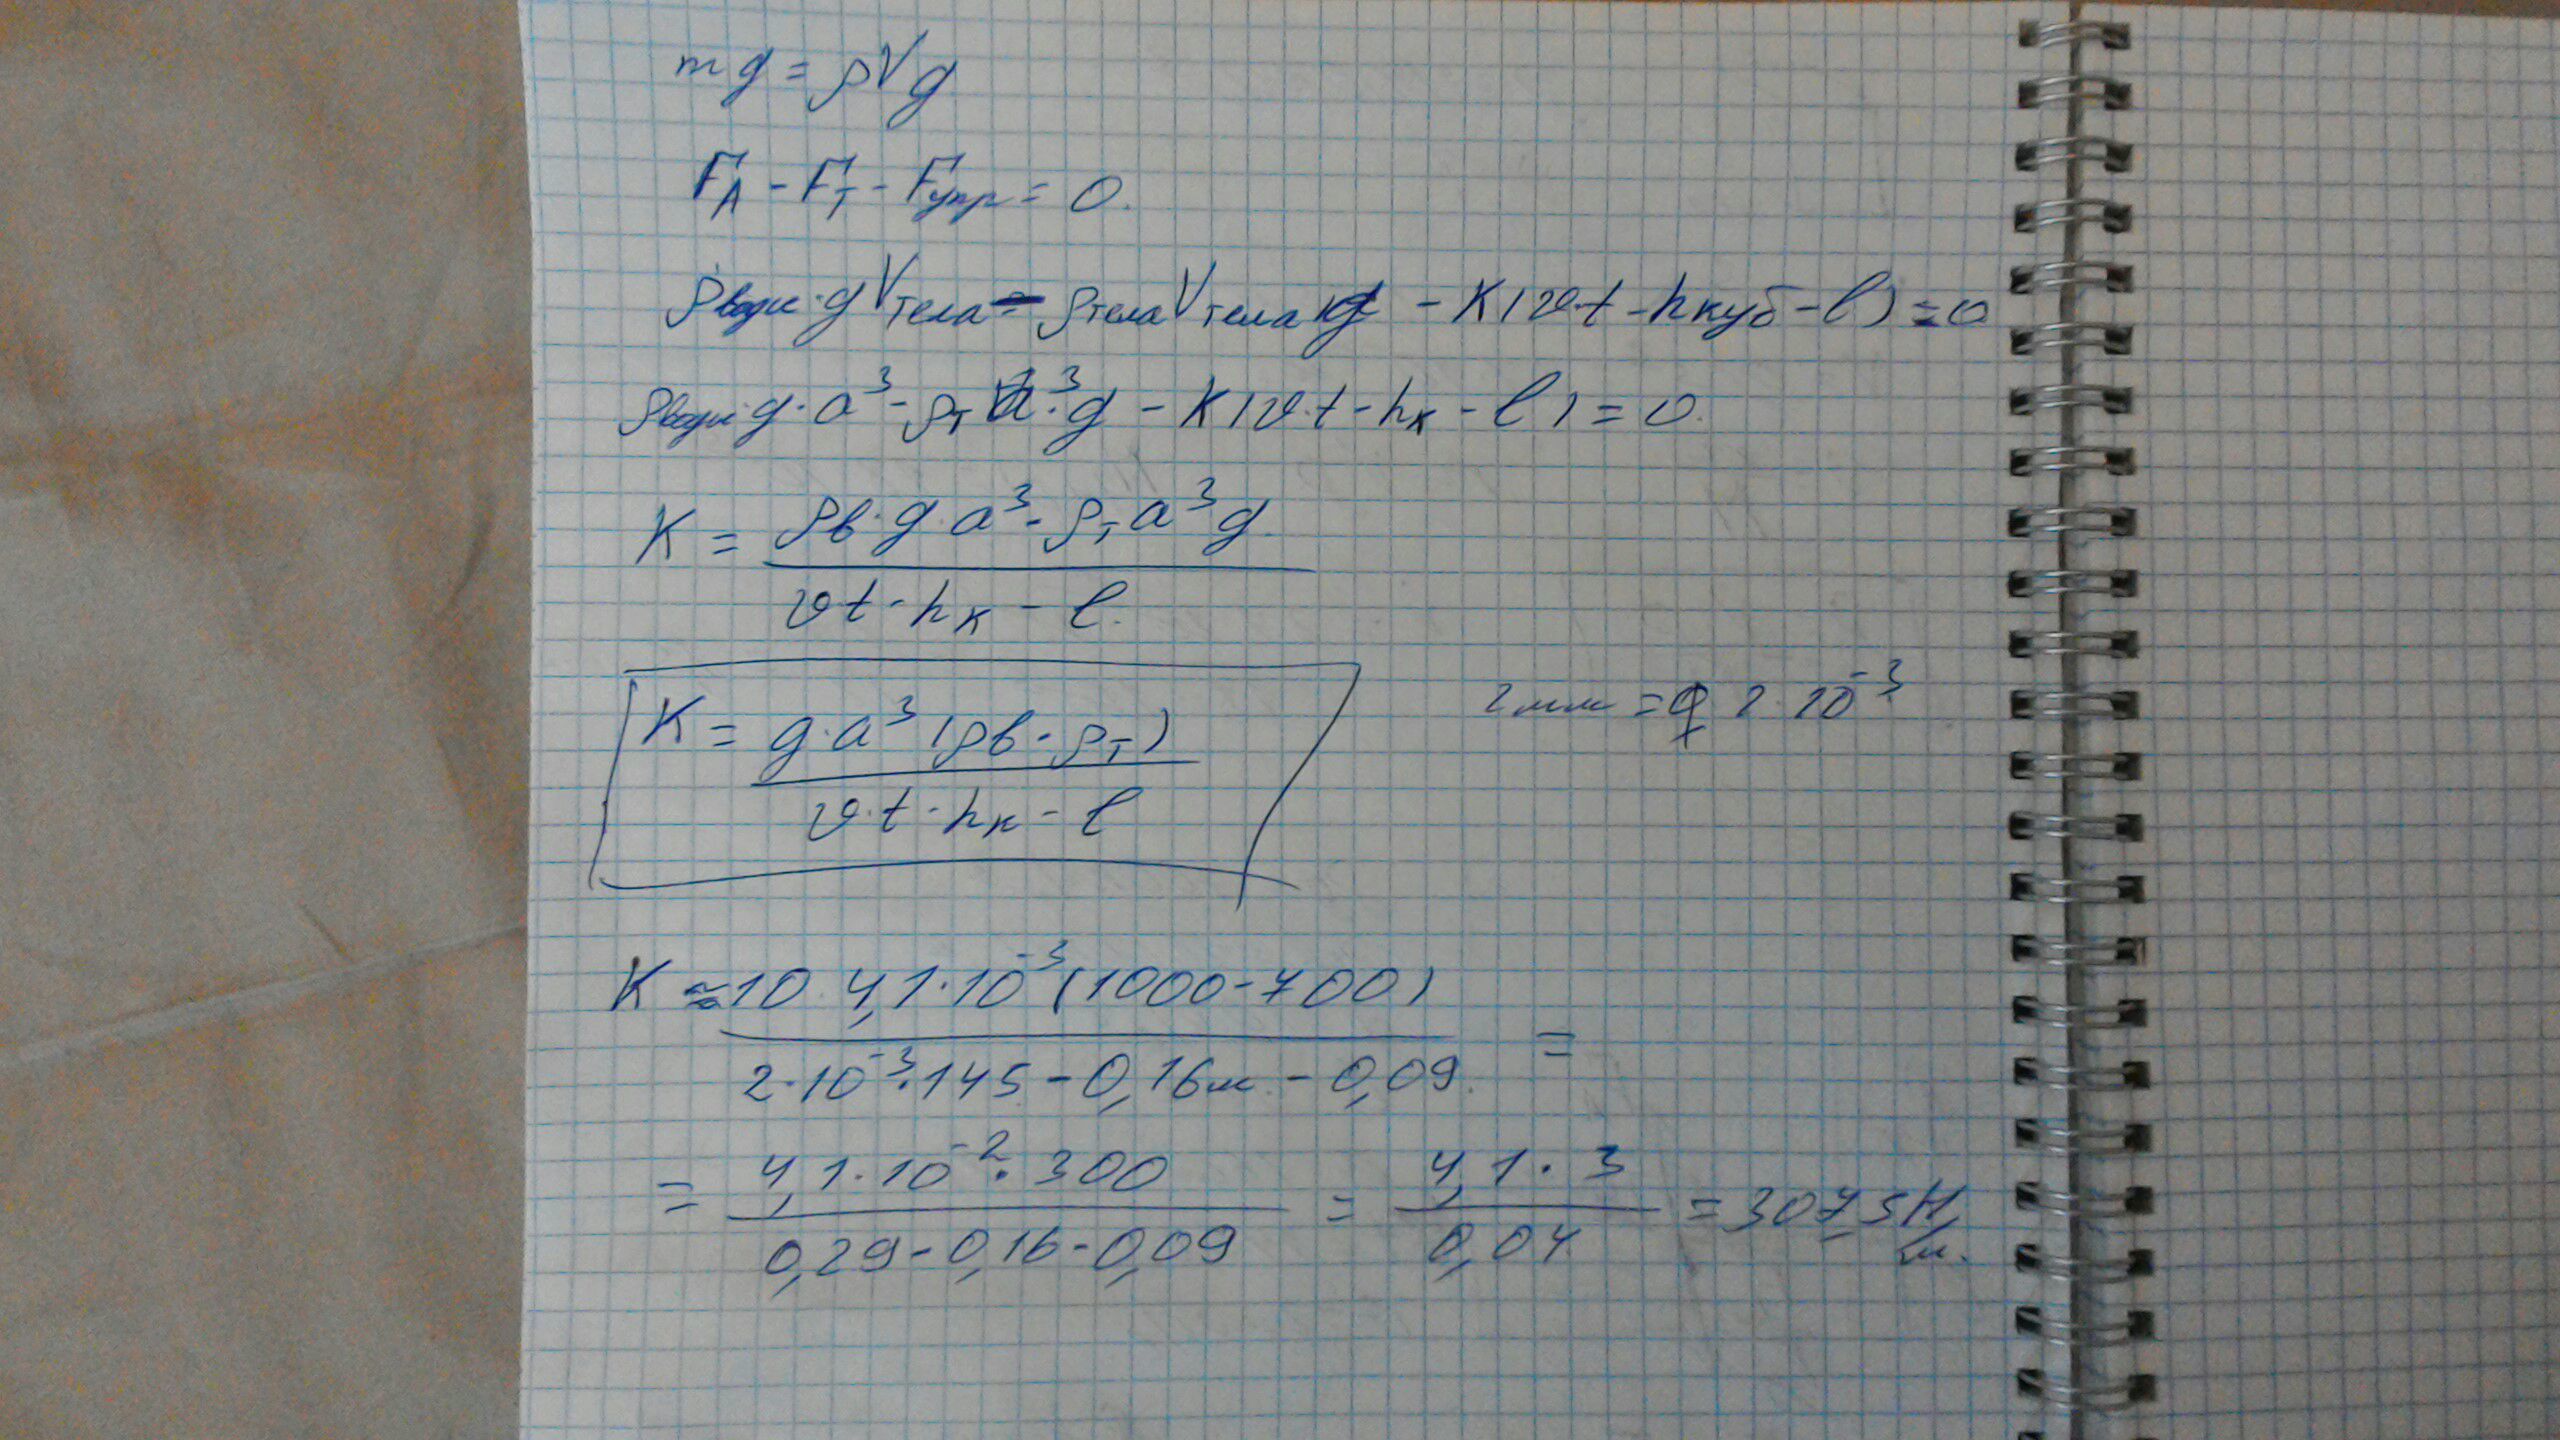 mg = ρVg
F_A - F_T - F_упр = 0.
ρводы·gV_тела - ρ_тела V_тела g - K(υ·t - h_куб - l) = 0
ρводы·g·a³ - ρ_T a³·g - K(υ·t - h_K - l) = 0.
K = (ρв·g·a³ - ρ_T a³g) / (υt - h_K - l.)
K = (g·a³(ρв - ρ_T)) / (υ·t - h_K - l)
2мм = 2·10⁻³
K ≈ (10·4,1·10⁻³(1000-700)) / (2·10⁻³·145 - 0,16м - 0,09.) =
= (4,1·10⁻²·300) / (0,29-0,16-0,09) = (4,1·3) / (0,04) = 307,5 Н/м.